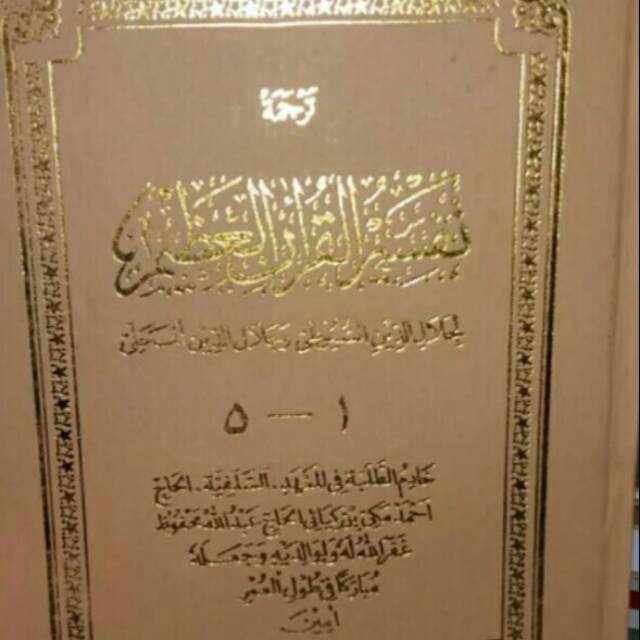 ترجمة
تفسير القرآن العظيم
لجلال الدين السيوطي وجلال الدين المحلي
١ — ٥
خادم الطلبة في المعهد السلفية الحاج
احمد مكي بن الحاج عبد الله محفوظ
غفر الله له ولوالديه وجعله
مباركا في طول العمر
امين